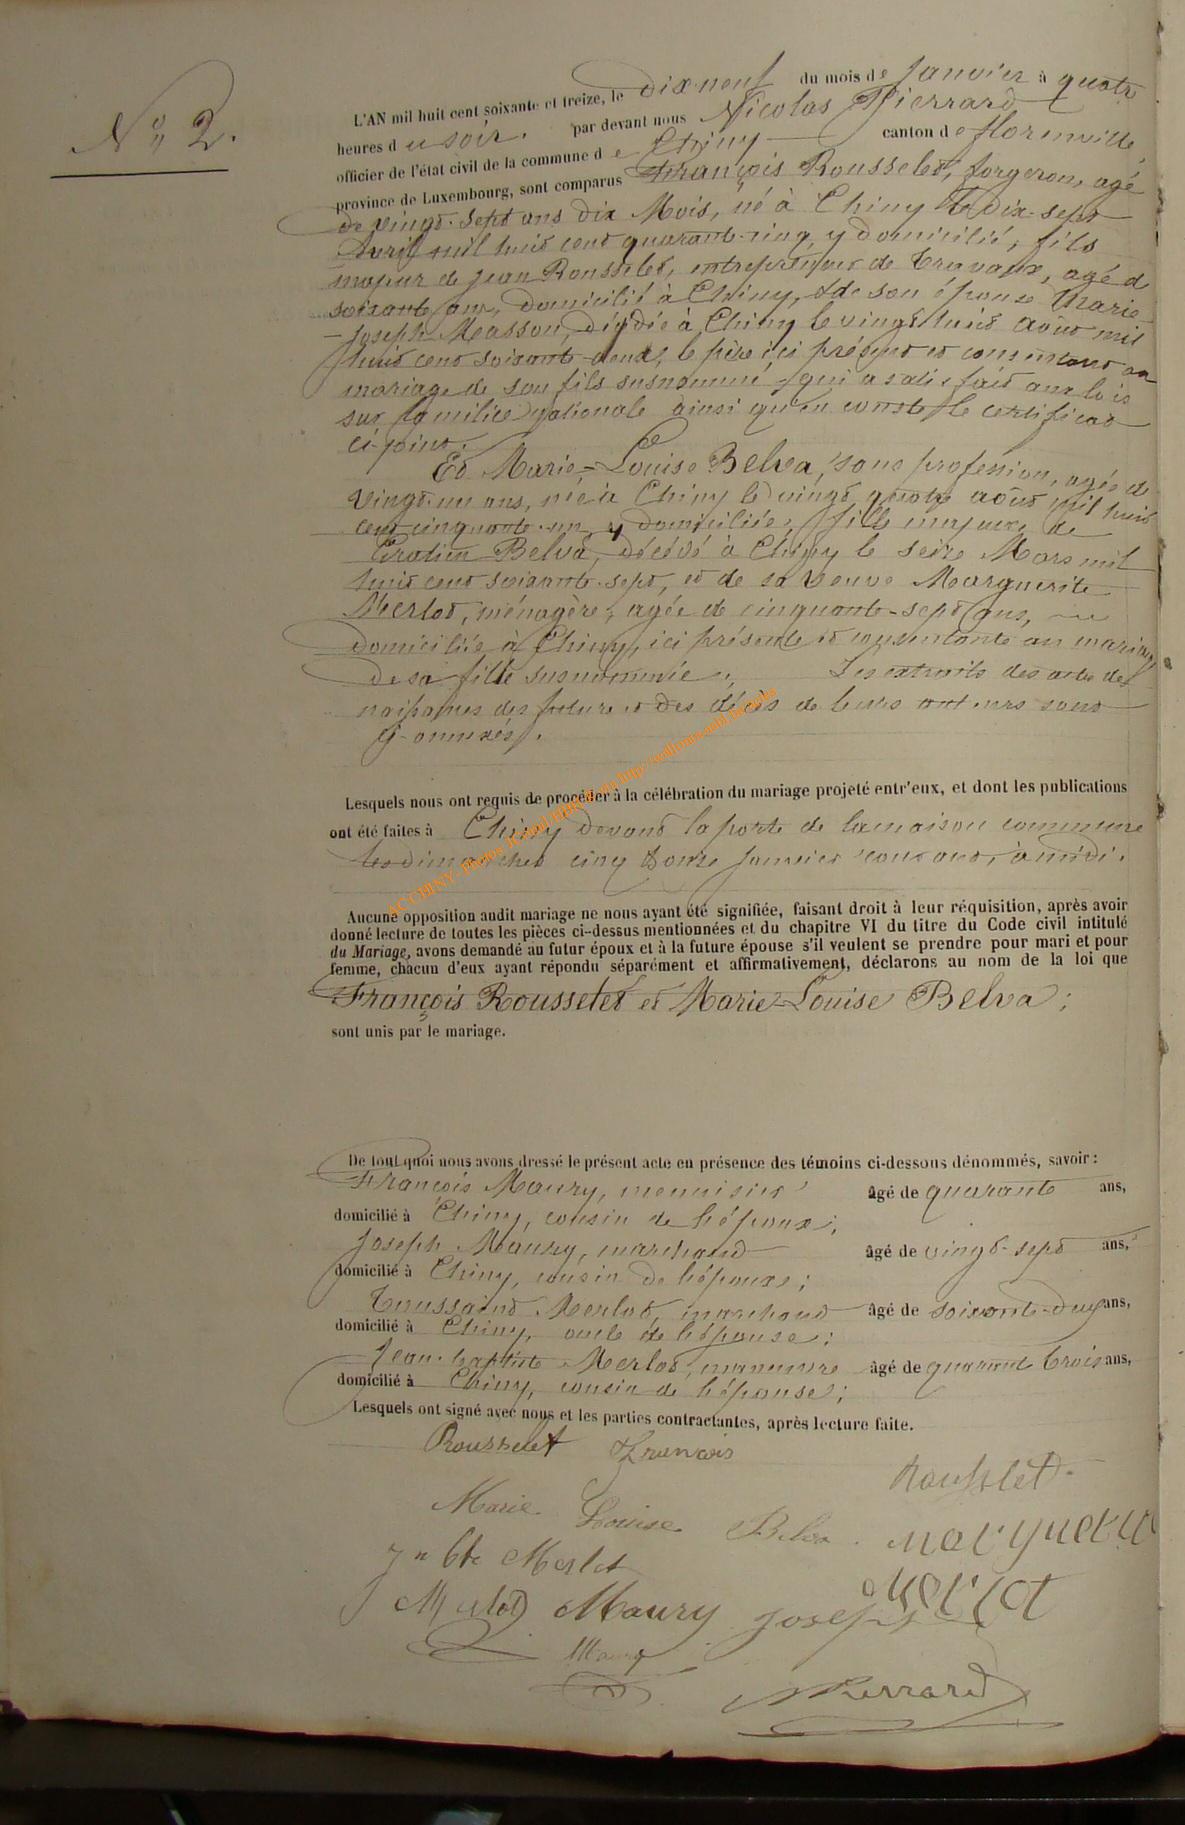 N° 2.
L'AN mil huit cent soixante et treize, le dix-neuf du mois de Janvier à quatre
heures du soir. par devant nous Nicolas Pierrard
officier de l'état civil de la commune de Chiny canton de florenville,
province de Luxembourg, sont comparus François Rousselet, forgeron, agé
de vingt-sept ans dix Mois, né à Chiny le dix-sept
Avril mil huit cent quarante-cinq, y domicilié, fils
majeur de Jean Rousselet, entrepreneur de travaux, agé de
soixante ans, domicilié à Chiny, & de son épouse Marie
-Joseph Masson, décédée à Chiny le vingt huit août mil
huit cent soixante-deux, le père ici présent et consentant au
mariage de son fils susnommé, qui a satisfait aux lois
sur la milice nationale ainsi qu'en conste le certificat
ci-joint.
Et Marie-Louise Belva, sans profession, agée de
vingt-un ans, née à Chiny le vingt quatre août mil huit
cent cinquante-un, y domiciliée, fille majeure de
Gratien Belva, décédé à Chiny le seize Mars mil
huit cent soixante-sept, et de sa veuve Marguerite
Merlot, ménagère, agée de cinquante-sept ans,
domiciliée à Chiny, ici présente et consentante au mariage
de sa fille susnommée; Les extraits des actes de
naissances des futurs et des décès de leurs auteurs sont
y annexés.
Lesquels nous ont requis de procéder à la célébration du mariage projeté entr'eux, et dont les publications
ont été faites à Chiny devant la porte de la maison commune
les dimanches cinq & douze Janvier courant, à midi.
ACCHINY- Photos
Aucune opposition audit mariage ne nous ayant été signifiée, faisant droit à leur réquisition, après avoir
donné lecture de toutes les pièces ci-dessus mentionnées et du chapitre VI du titre du Code civil intitulé
du Mariage, avons demandé au futur époux et à la future épouse s'il veulent se prendre pour mari et pour
femme, chacun d'eux ayant répondu séparément et affirmativement, déclarons au nom de la loi que
François Rousselet et Marie-Louise Belva;
sont unis par le mariage.
De tout quoi nous avons dressé le présent acte en présence des témoins ci-dessous dénommés, savoir :
François Maury, menuisier âgé de quarante ans,
domicilié à Chiny, cousin de l'époux;
Joseph Maury, marchand âgé de vingt-sept ans,
domicilié à Chiny, cousin de l'époux;
Toussaint Merlot, marchand âgé de soixante-deux ans,
domicilié à Chiny, oncle de l'épouse;
Jean-baptiste Merlot, manœuvre âgé de quarante trois ans,
domicilié à Chiny, cousin de l'épouse;
Lesquels ont signé avec nous et les parties contractantes, après lecture faite.
Rousselet François
Rousslet
Marie Louise Belva. Marguerite
Jn bte Merlet Merlot
Merlot Maury Joseph
Maury
NPierrard